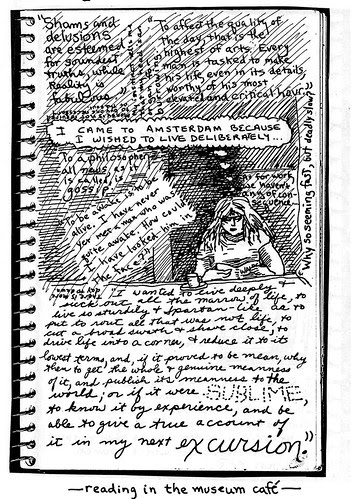 "Shams and
delusions
are esteemed
for soundest
truths, while
Reality is
fabulous."
"To affect the quality of
the day, that is the
highest of arts. Every
man is tasked to make
his life, even in its details,
worthy of his most
elevated and critical hour."
I CAME TO AMSTERDAM BECAUSE
I WISHED TO LIVE DELIBERATELY...
To a philosopher
all news, as it
is called, is
gossip
To be awake is to be
alive. I have never
yet met a man who was
quite awake. How could
I have looked him in
the face?
As for work,
we haven't
any of con-
sequence.
"Why so seeming fast, but deadly slow?"
"I wanted to live deeply &
suck out all the marrow of life, to
live so sturdily & Spartan-like as to
put to rout all that was not life, to
cut a broad swath & shave close, to
drive life into a corner, & reduce it to its
lowest terms, and, if it proved to be mean, why
then to get the whole & genuine meanness
of it, and publish its meanness to the
world; or if it were SUBLIME,
to know it by experience, and be
able to give a true account of
it in my next excursion."
—reading in the museum café—